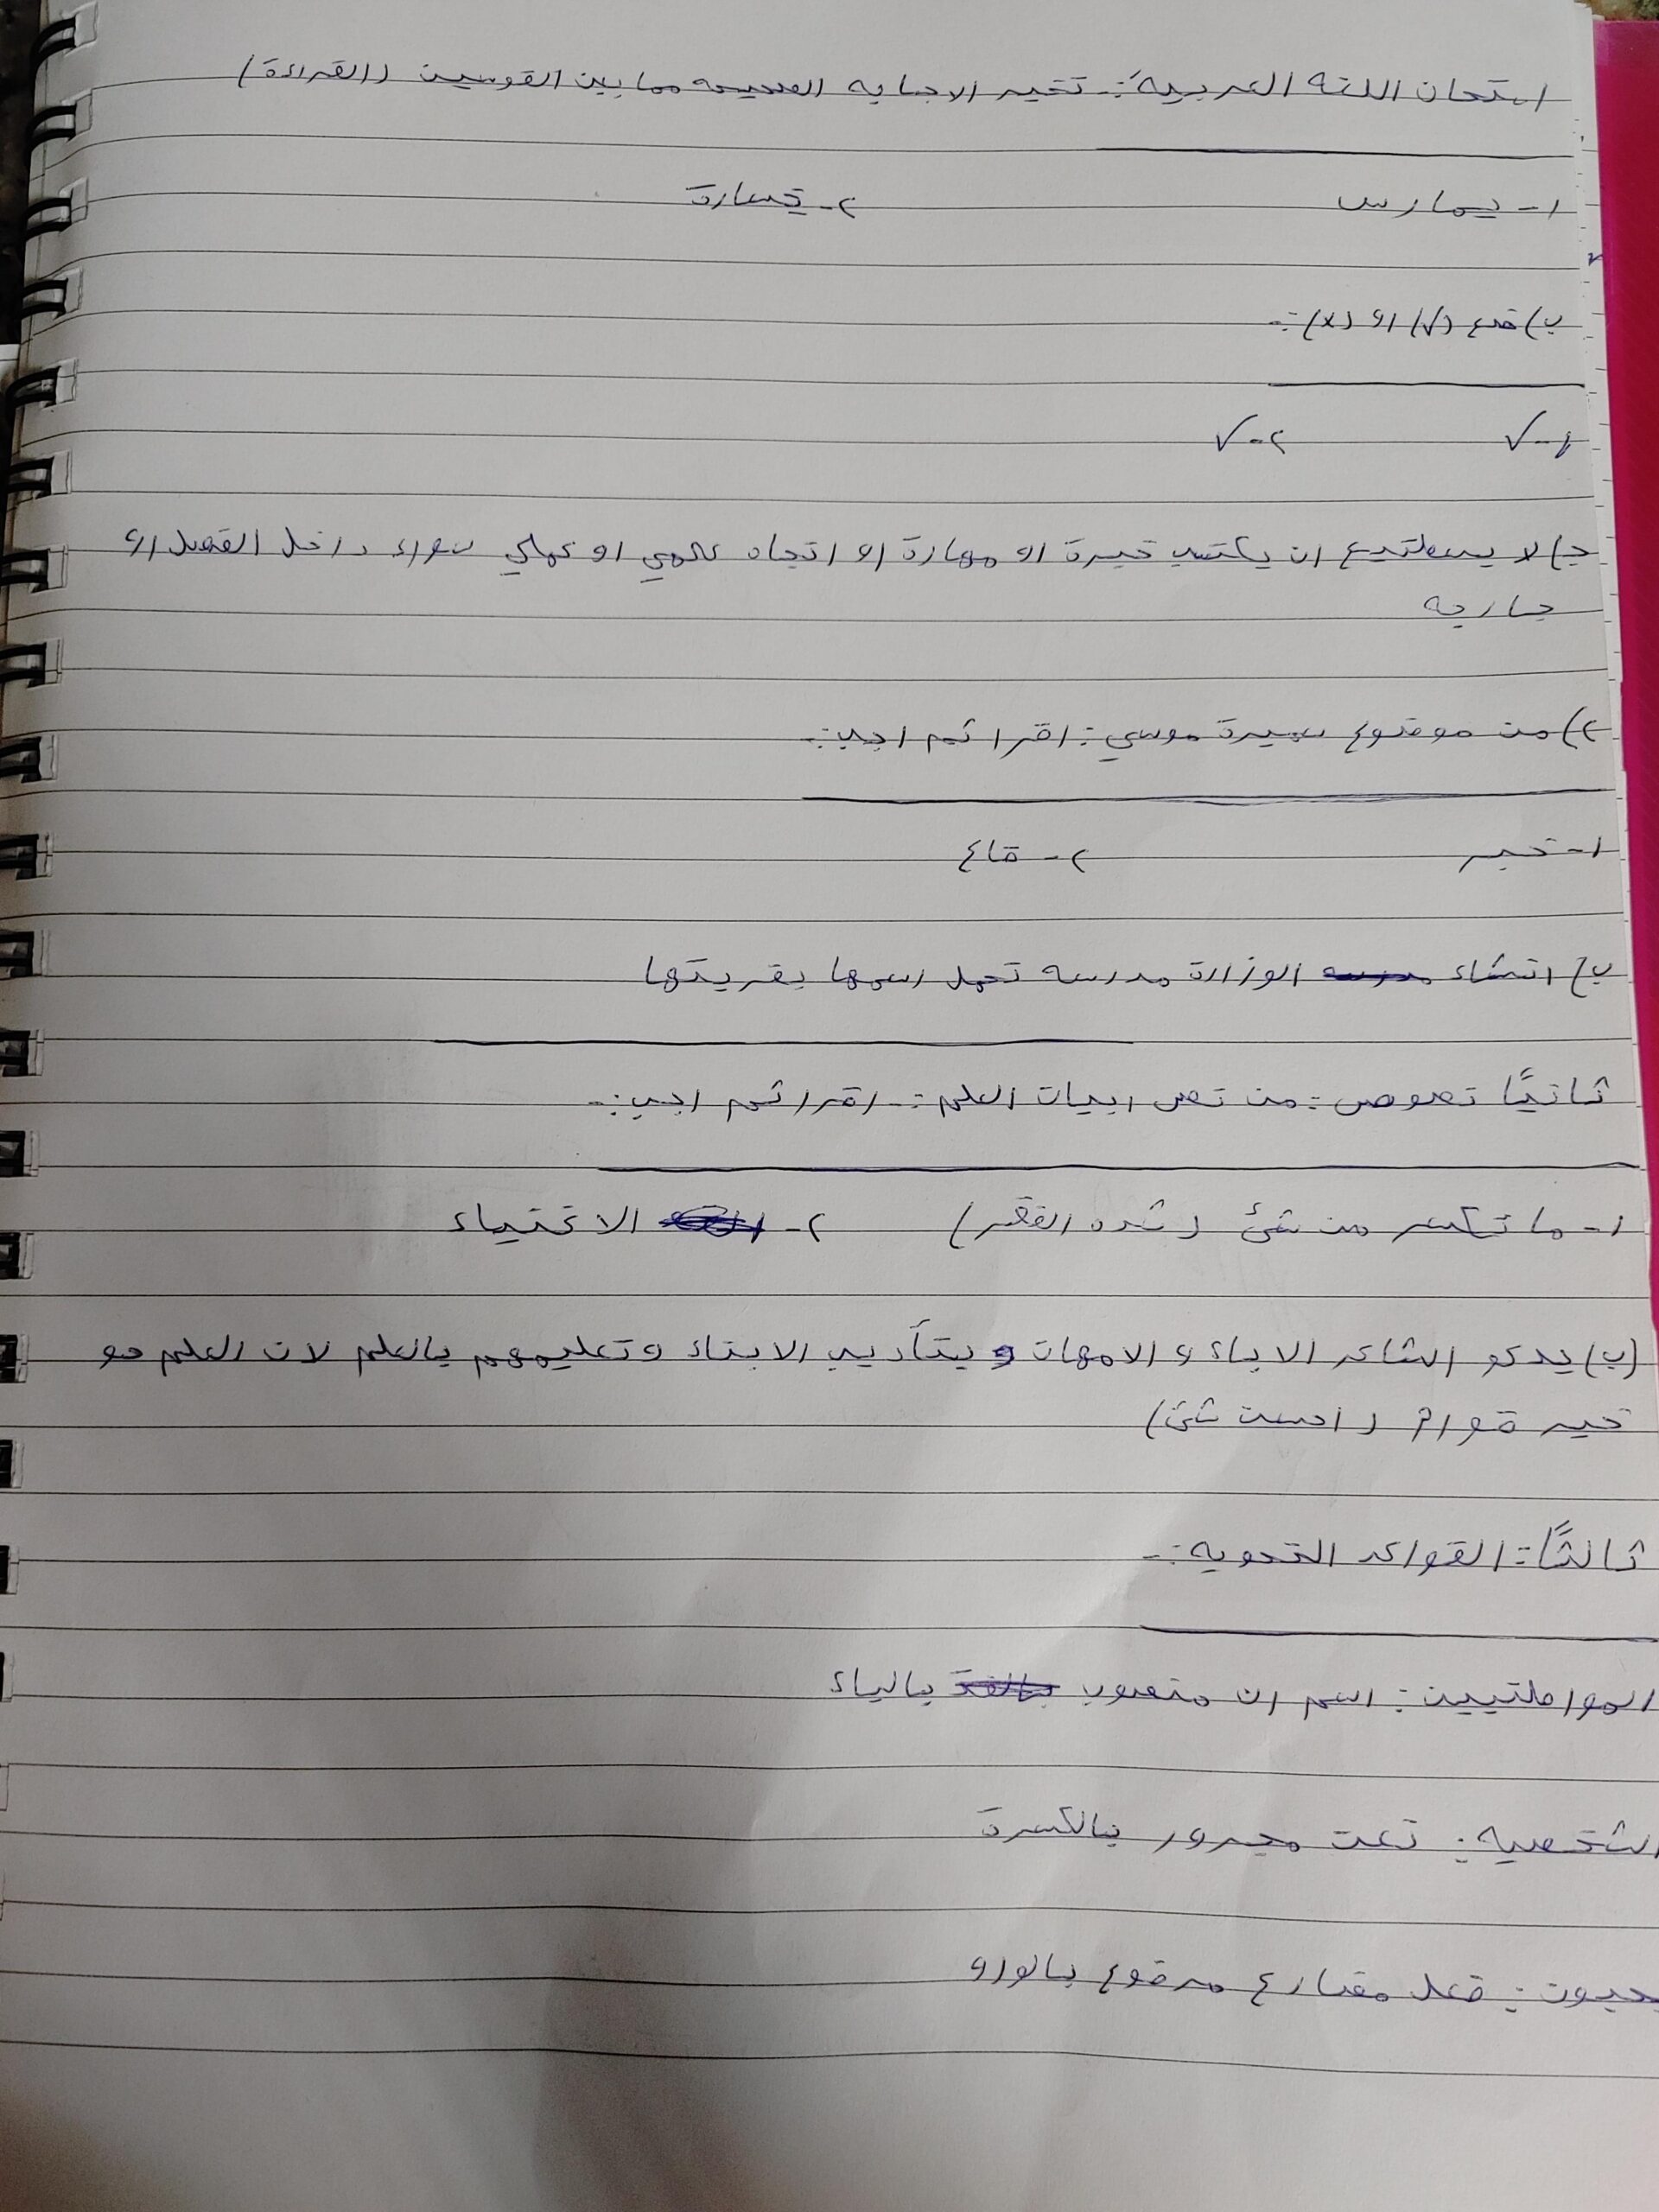 امتحان اللغه العربية:- تخير الاجابه الصحيحه مما بين القوسين (القراءة)
١- يمارس
٢- خسارة
ب) ضع (✓) او (x):-
١- ✓
٢- ✓
ج) لا يستطيع ان يكتسب خبرة او مهارة او اتجاه علمي او عملي سواء داخل الفصل او
خارجه
٢) من موضوع سميرة موسي: اقرا ثم اجب:-
١- خير
٢- قاع
ب) انشاء الوزارة مدرسه تحمل اسمها بقريتها
ثانيًا نصوص: من نص ابيات العلم:- اقرا ثم اجب:-
١- ما تكسر من شئ (شده الفقر)
٢- الاغنياء
(ب) يدعو الشاعر الاباء و الامهات و بتأديب الابناء وتعليمهم بالعلم لان العلم هو
خير قوام (احسن شئ)
ثالثًا: القواعد النحويه:-
المواطنيين: اسم ان منصوب بالياء
الشخصيه: نعت مجرور بالكسرة
فعل مضارع مرفوع بالواو